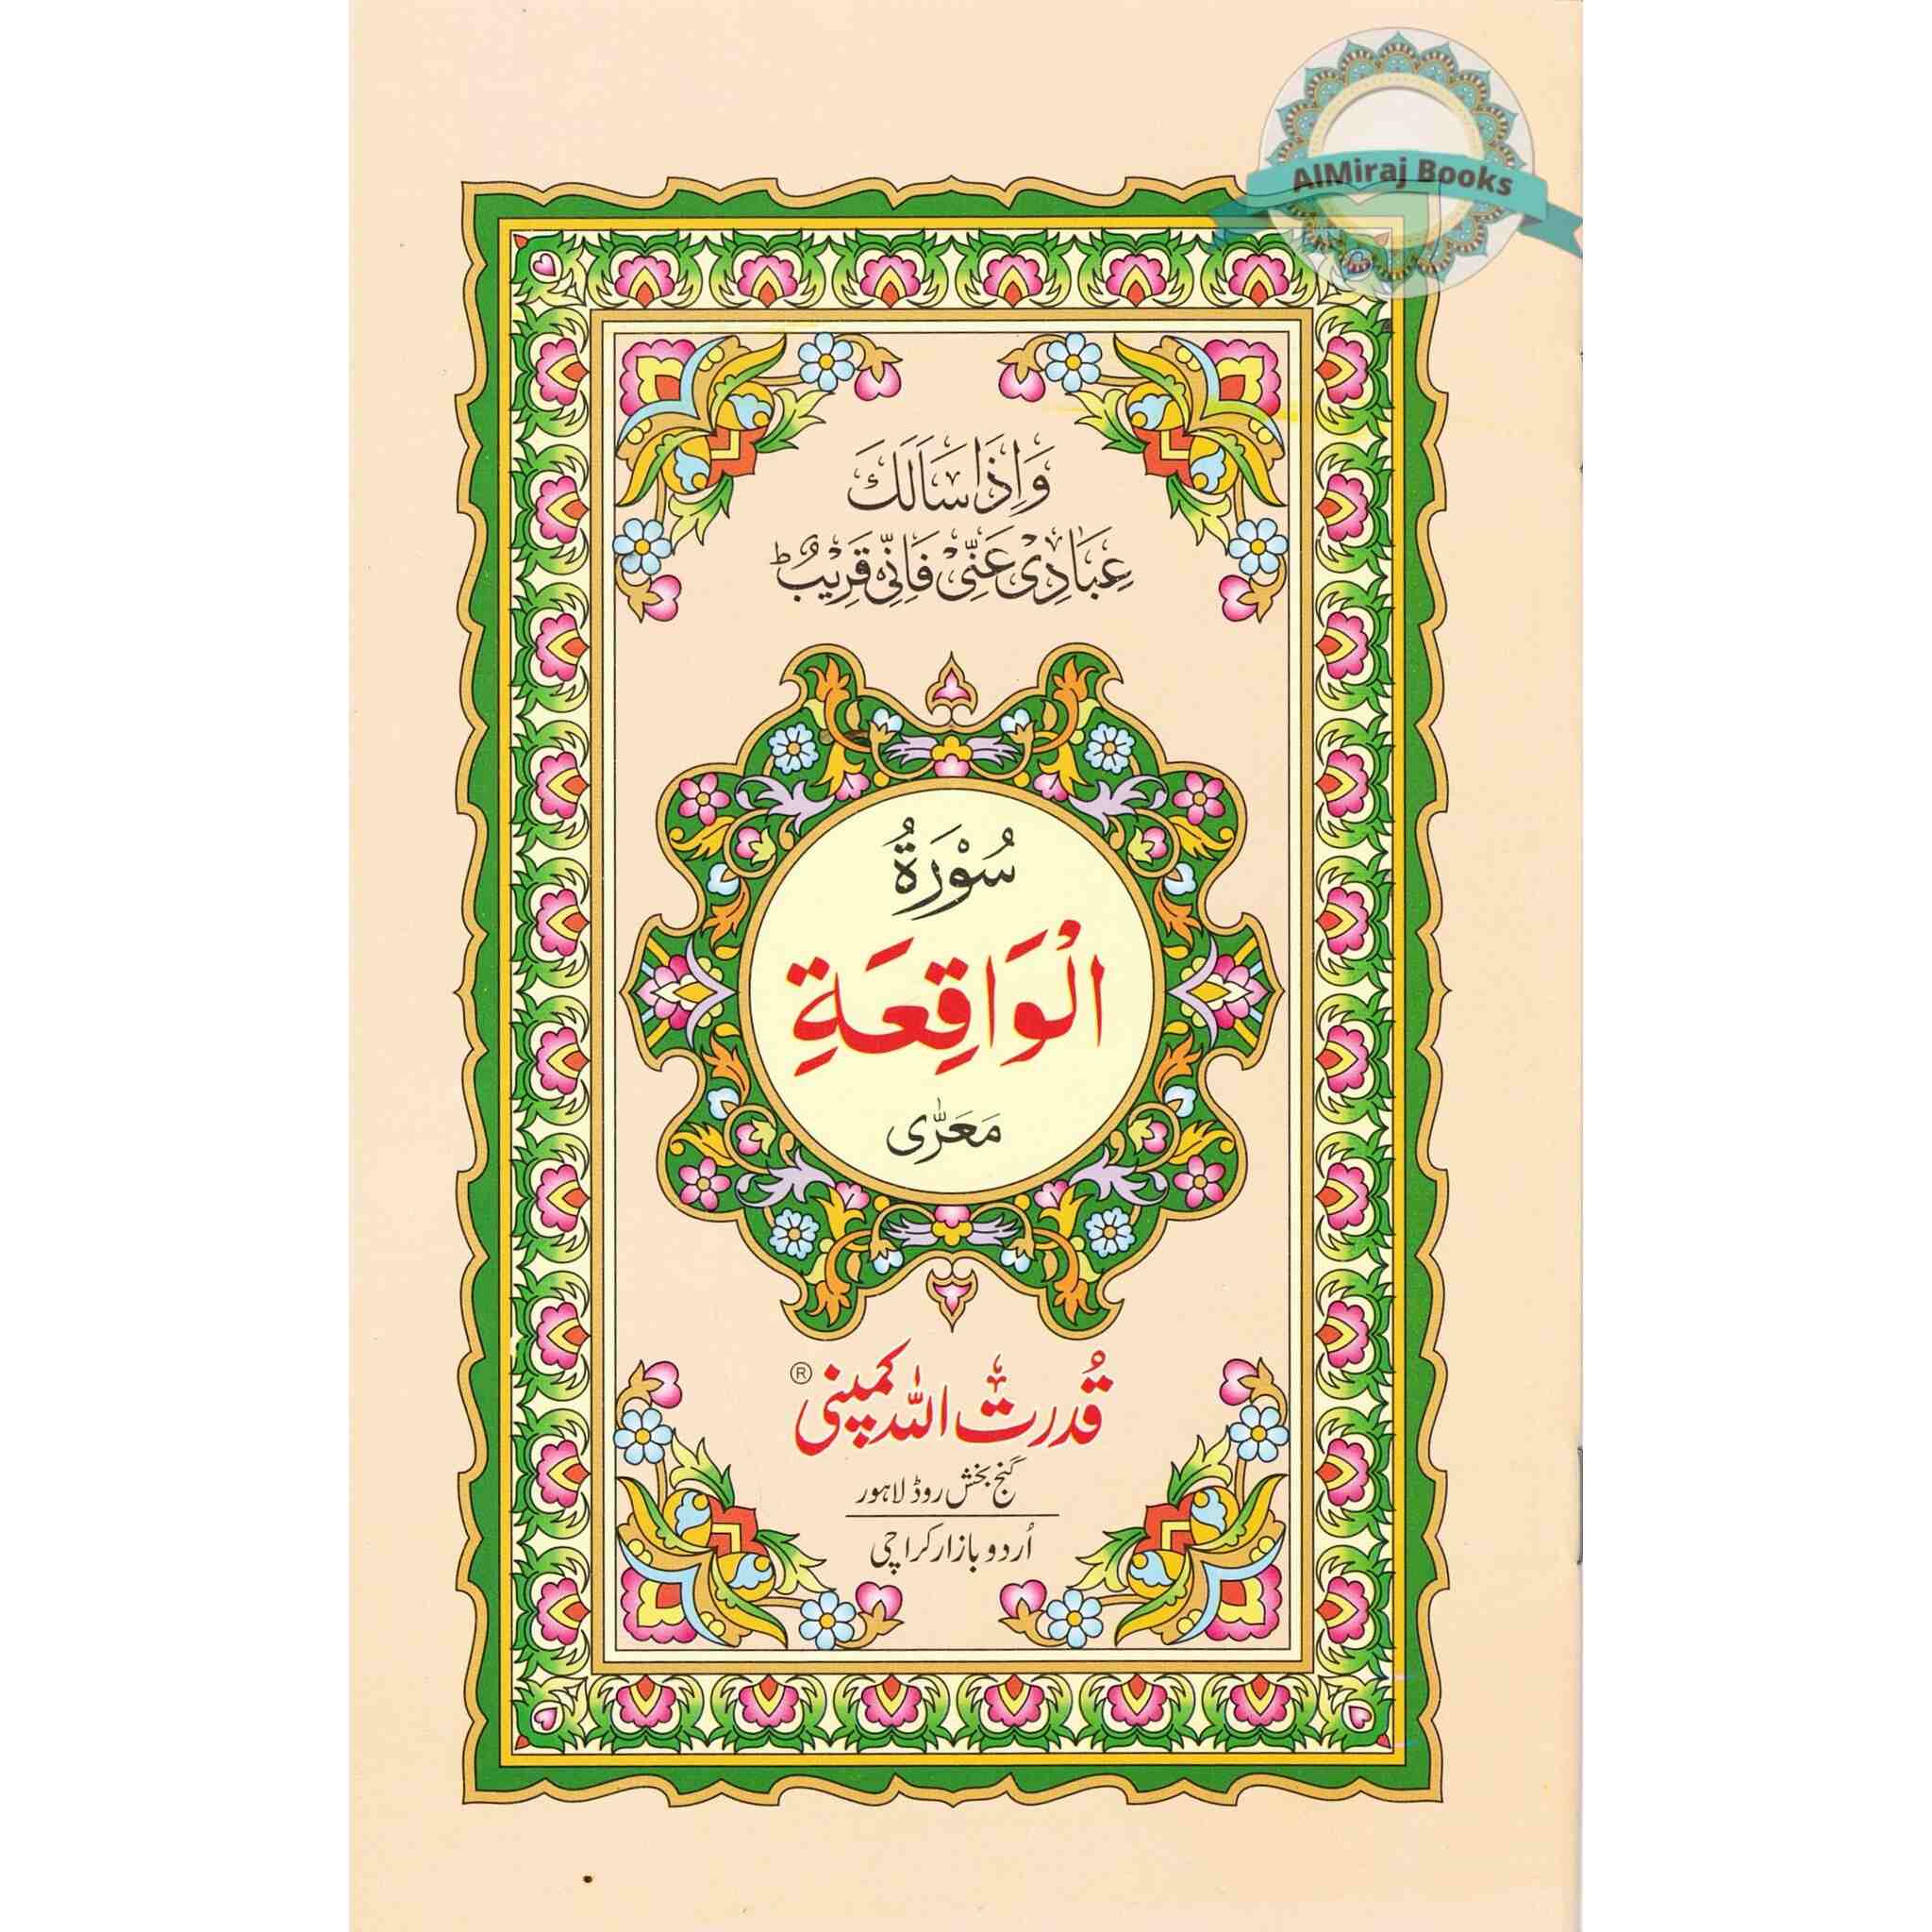 AlMiraj Books
وَاِذَا سَاَلَكَ
عِبَادِیْ عَنِّیْ فَاِنِّیْ قَرِیْبٌ ؕ
سُوْرَةُ
الْوَاقِعَةِ
مَعَرّٰی
قُدرت اللہ کمپنی ®
گنج بخش روڈ لاہور
اُردو بازار کراچی